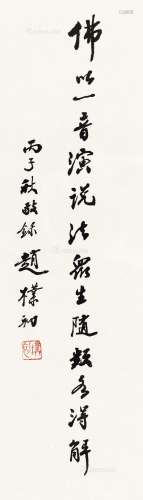 佛以一音演说法眾生随类各得解
丙子秋敬録 趙樸初